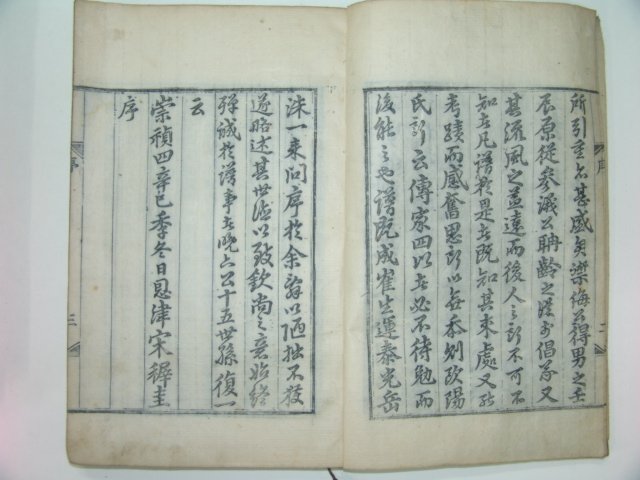 所引重者甚盛矣樂偉公得男之書
原從參議公聃齡之後而倡為又
其流風之益遠而後人之所不可不
知者凡譜於是者既知其來處又能
考蹟而感奮思所以無忝則歐陽
氏所云傳家四以者必不待勉而
後能之也譜既成崔生運泰光岳
洙一來問序於余余辭以陋拙不獲
遂略述其世德以致欽尚之意始終
殫誠於譜事者晚六公十五世孫復一
云
崇禎四辛巳季冬日恩津宋穉圭
序
序
三
序
二